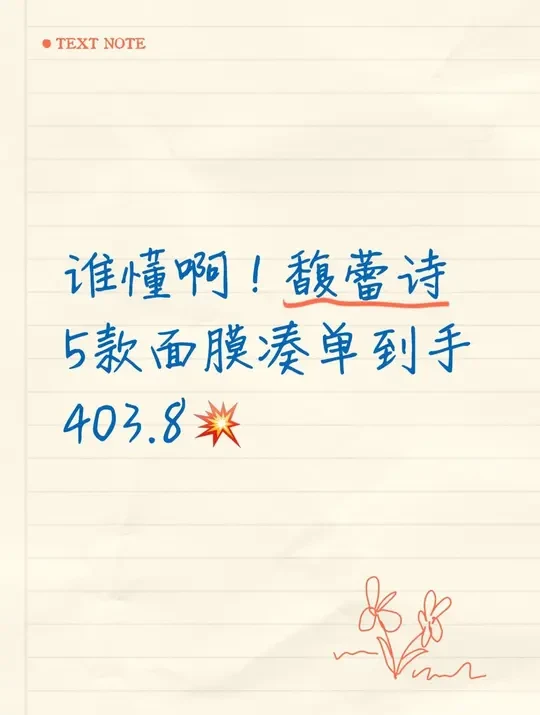 TEXT NOTE
谁懂啊！馥蕾诗
5款面膜凑单到手
403.8💥